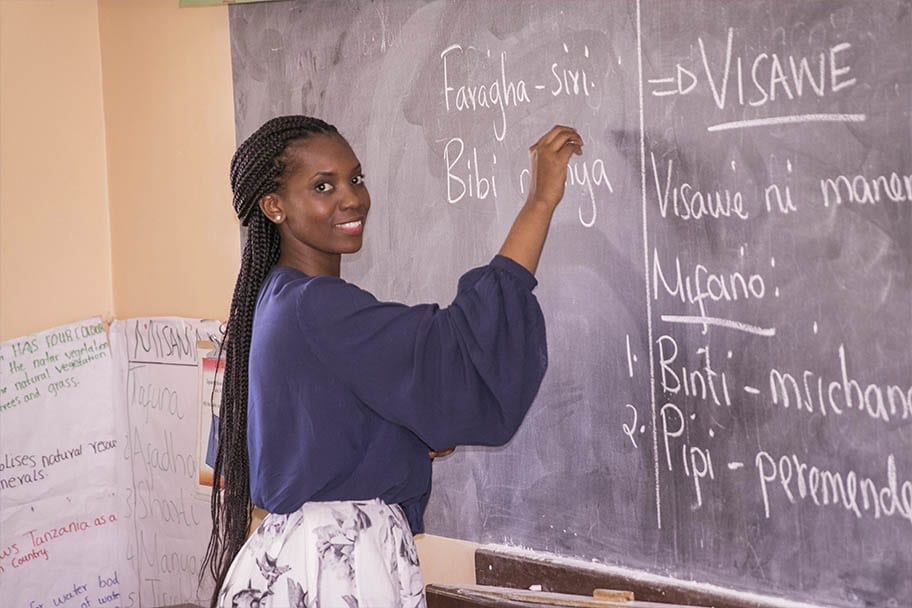 Faragha - siri.
Bibi nya
=D VISAWE
Visawe ni maner
Mifano:
1. Binti - msichana
2. Pipi - peremende
HAS FOUR COLOUR
the natural vegetation
natural vegetation
trees and grass.
natural resou
nerals.
Tanzania as a
Country
for water bod
of water
MISAMI